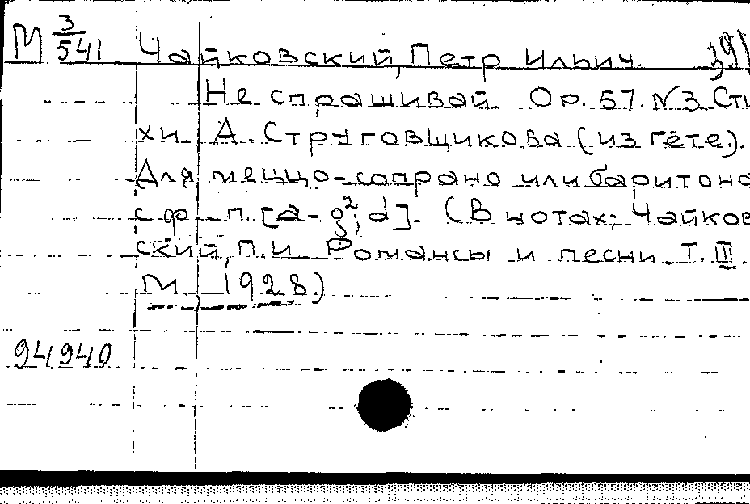 М 3/541 Чайковский, Петр Ильич
Не спрашивай Op. 57. №3 Сти
хи А. Струговщикова (из Гёте).
Для меццо-сопрано или баритона
с ф-п. [a-g², d]. (В нотах: Чайков
ский, П. И. Романсы и песни Т. III.
М. 1928.)
94940